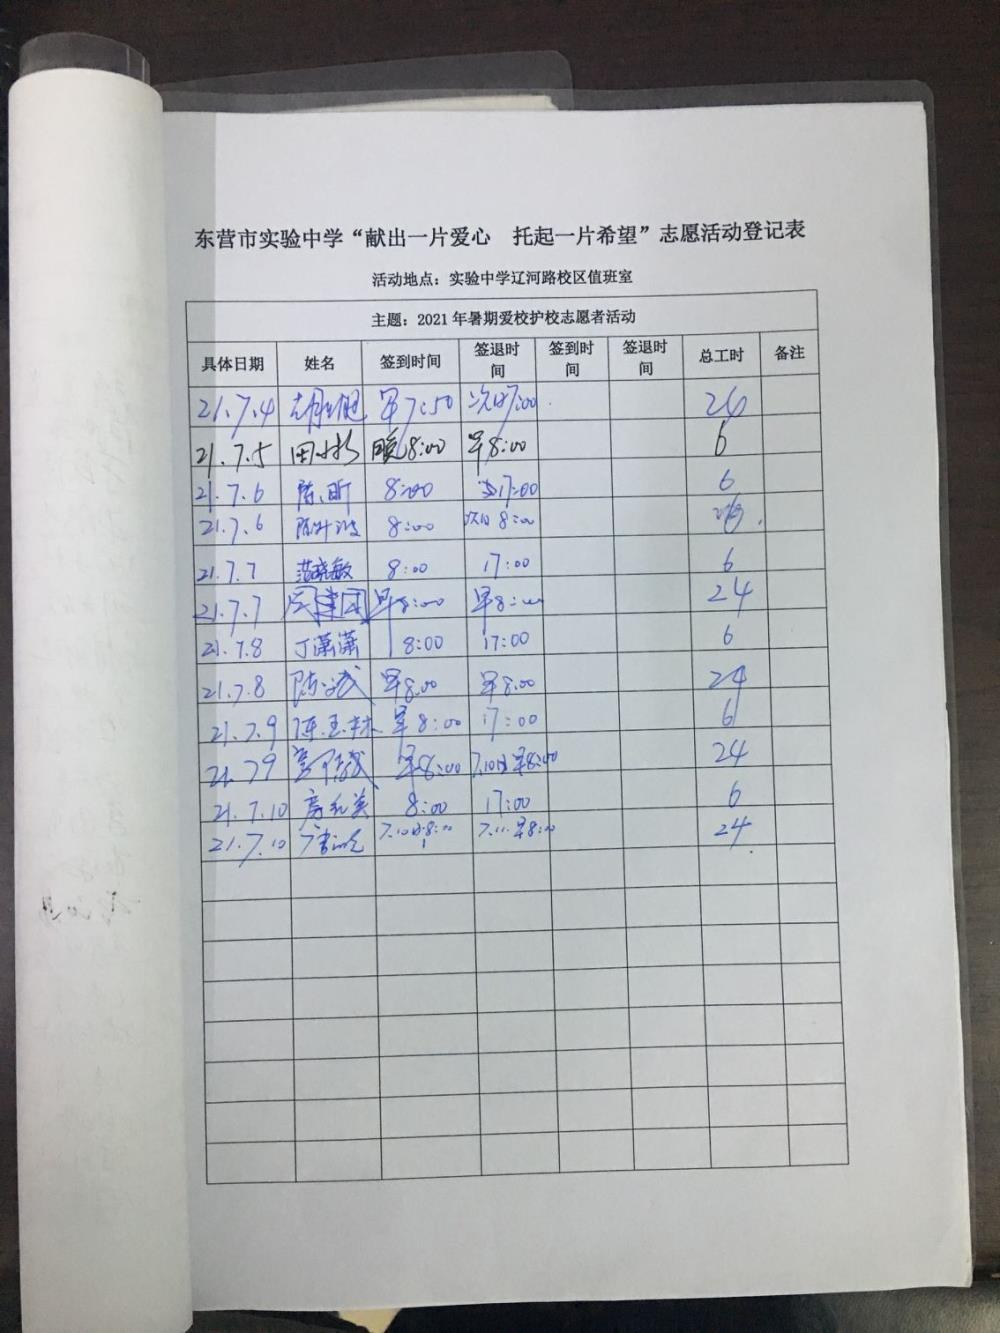 东营市实验中学“献出一片爱心 托起一片希望”志愿活动登记表
活动地点：实验中学辽河路校区值班室
主题：2021年暑期爱校护校志愿者活动
具体日期 姓名 签到时间 签退时间 签到时间 签退时间 总工时 备注
21.7.4 早7:50 次日7:00 26
21.7.5 晚8:00 早8:00 6
21.7.6 陈昕 8:00 17:00 6
21.7.6 8:00 次日8:00
21.7.7 范晓敏 8:00 17:00 6
21.7.7 早8:00 早8:00 24
21.7.8 丁潇潇 8:00 17:00 6
21.7.8 早8:00 早8:00 24
21.7.9 陈玉林 早8:00 17:00 6
21.7.9 早8:00 7.10日早8:00 24
21.7.10 8:00 17:00 6
21.7.10 7.10日8:00 7.11.早8:00 24